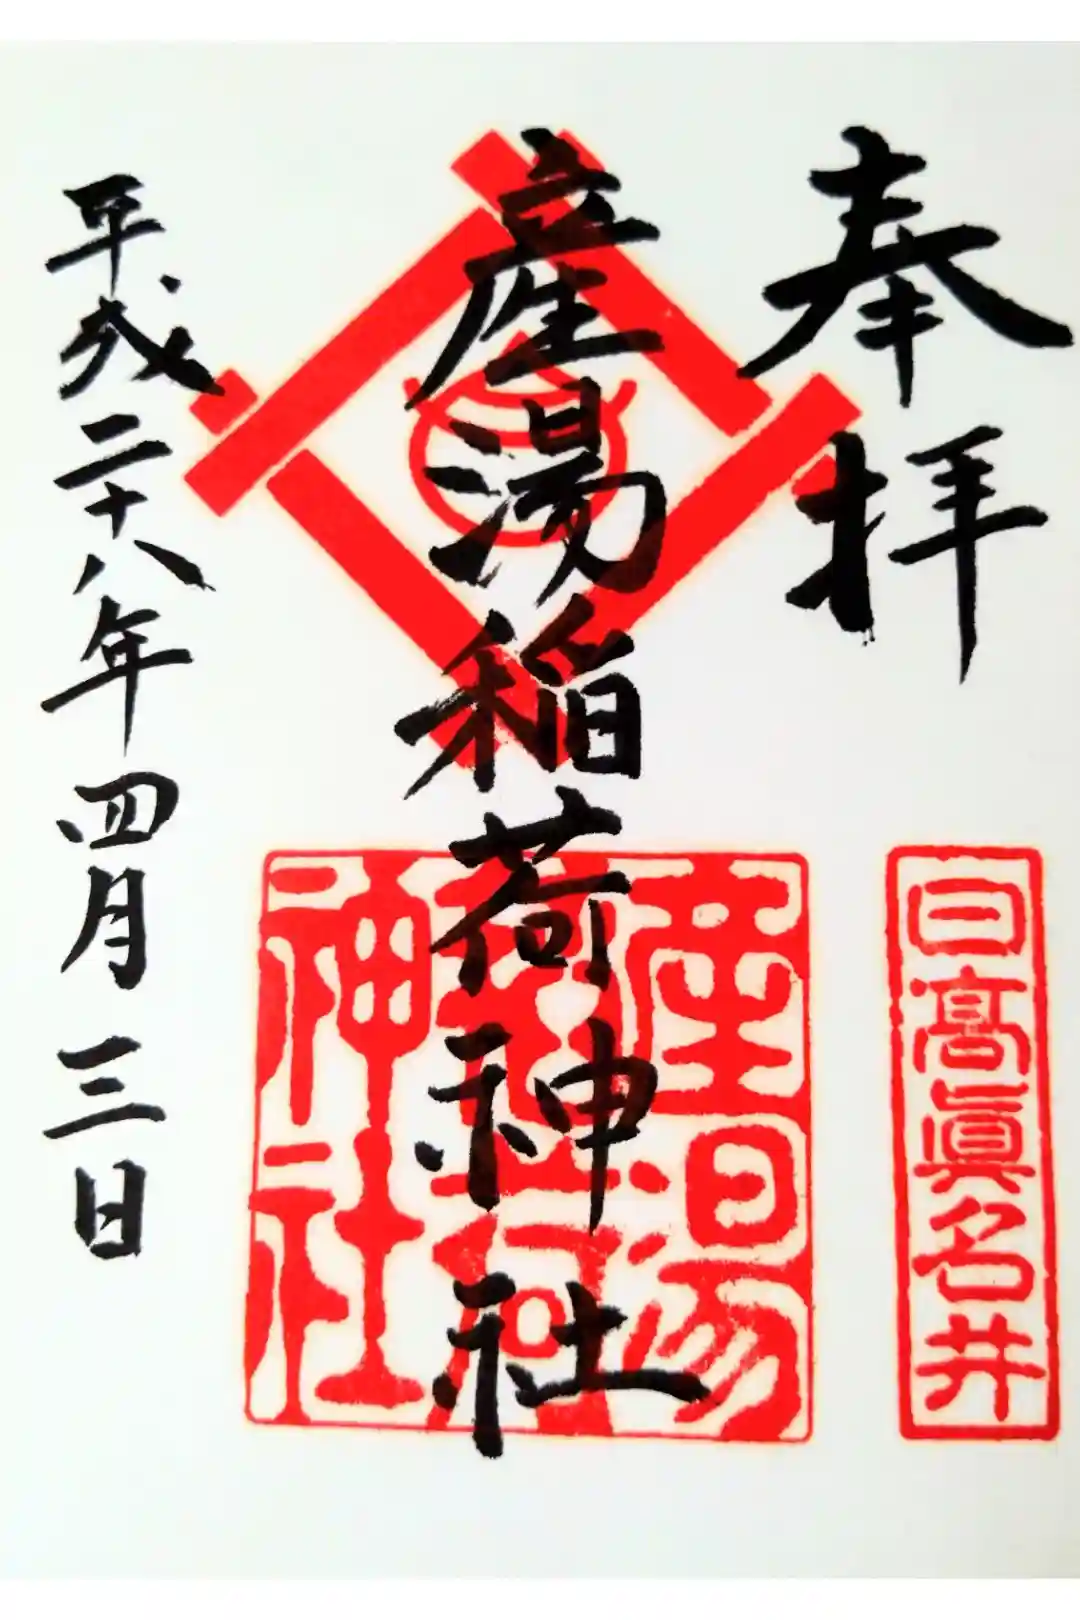 奉拝
日高眞名井
産湯稲荷神社
産湯
稲荷
神社
平成二十八年四月三日